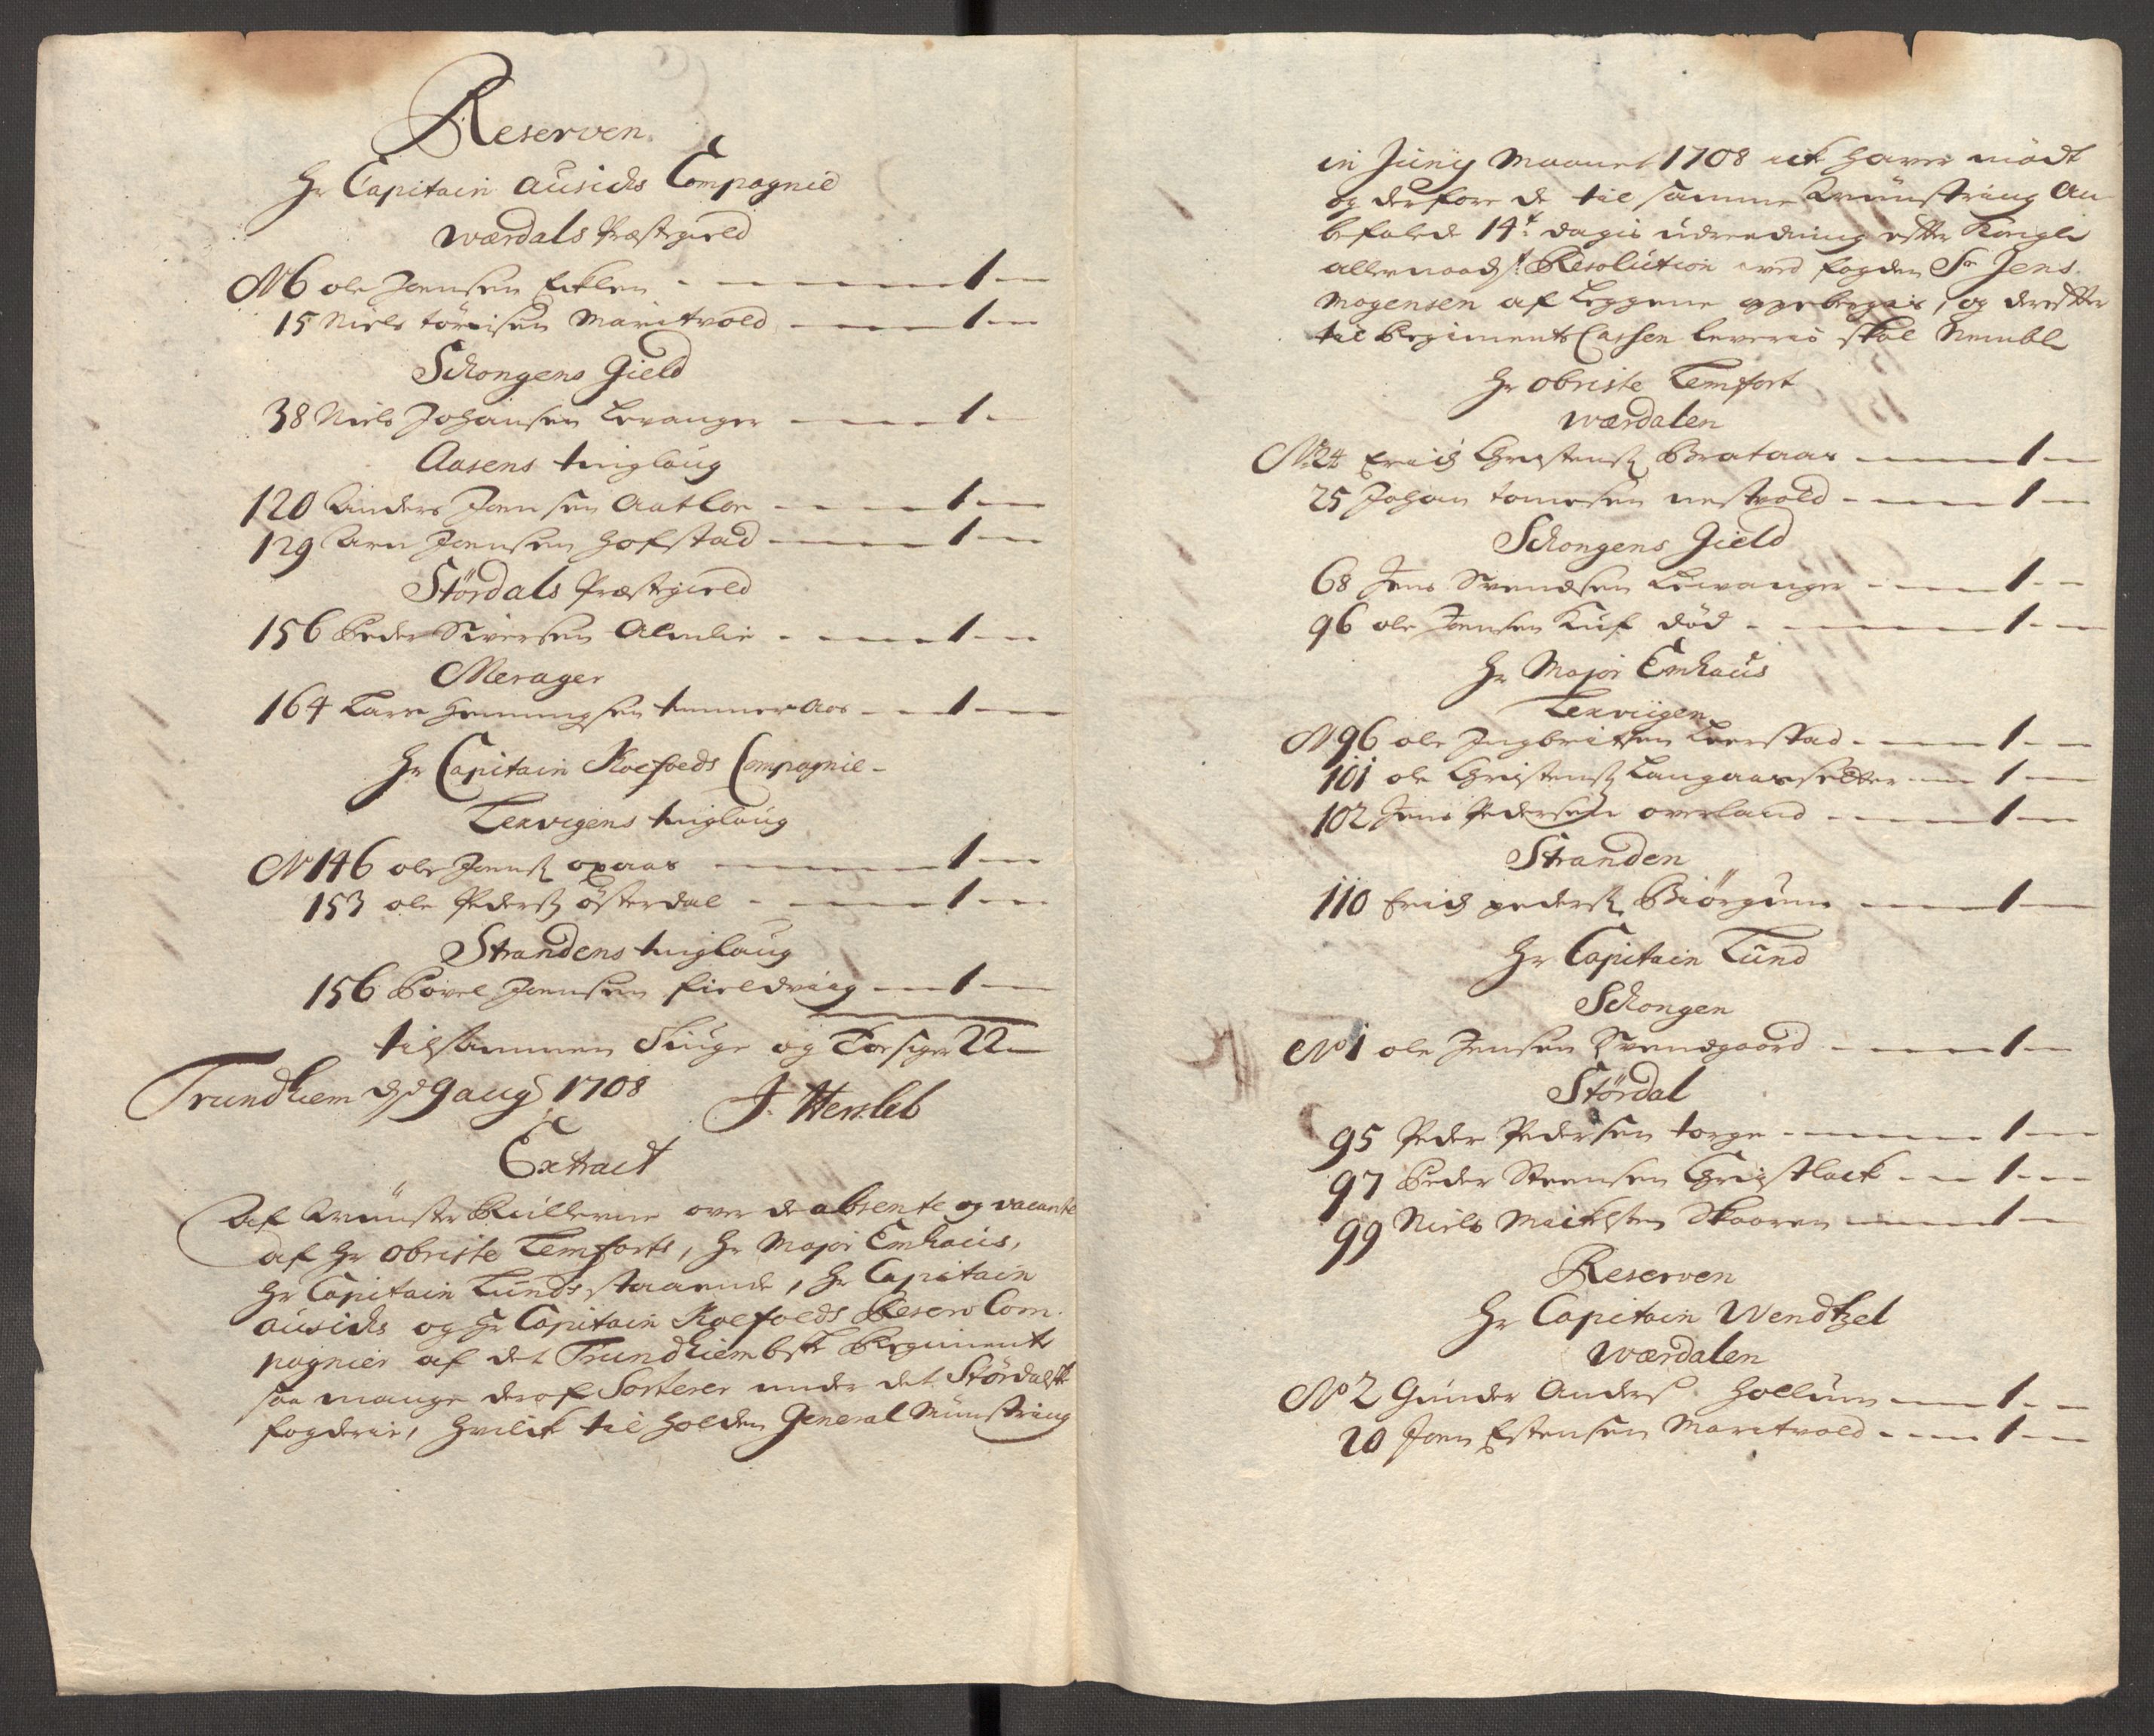 Reserven
Hr Capitain Ausichs Compagnie
Wærdals Præstegield
No 6 ole Joensen Eklen 1
15 Niels Törrisen Maritvold 1
Schongens Gield
38 Niels Johansen Levanger 1
Aasens tinglaug
120 Anders Joensen Aatloe 1
129 Arn Joensen Hofstad 1
Stördals Præstegield
156 Peder Siversen Almlie 1
Merager
164 Lars Hemmingsen 1
Hr Capitain Koefoeds Compagnie
Lexvigens tinglaug
No 146 ole Joens: opaas 1
153 ole Peders: österdal 1
Strandens tinglaug
156 Povel Joensen Fieldviig 1
tilsammen Tiuge og Toe siger 22
Trundhiem d: 9 aug 1708 J. Hersleb
Extract
Af Munster Rullerne over de absente og vacante
af Hr obriste Lemforts, Hr Major Emhaus,
Hr Capitain Lunds staaende, Hr Capitain
Ausichs og Hr Capitain Koefoeds Reserv Com
pagnier af det Trundhiembske Regimente
saa mange deraf Sorterer under det Stördalske
fogderie, hvilcke til holden General Münstring
in Juny Maanet 1708 ick haver mödt
og derfore de til samme Munstring An
befalede 14 dages udreedning efter Kongl
allernaads: Resolution ved fogden Sr Jens
Mogensen af Leggene opebergis, og derefter
til Regiments Cassen leveris skal Nembl
Hr obriste Lemfort
Wærdalen
No 24 Erich Christens: Brataas 1
25 Johan Tomesen nestvold 1
Schongens Gield
68 Jens Svendsen Levanger 1
96 ole Jensen död 1
Hr Major Emhaus
Lexviigen
No 96 ole Ingbritsen Leerstad 1
101 ole Christens: Langaassetter 1
102 Jens Pedersen overland 1
Stranden
110 Erich peders: Biörgum 1
Hr Capitain Lund
Schongen
No 1 ole Jensen Svendgaard 1
Stördal
95 Peder Pedersen torge 1
97 Peder Steensen 1
99 Niels Michelsen Skaaren 1
Reserven
Hr Capitain Wendtzel
Wærdalen
No 2 Gunder Anders: Hollum 1
20 Joen Estensen Maritvold 1